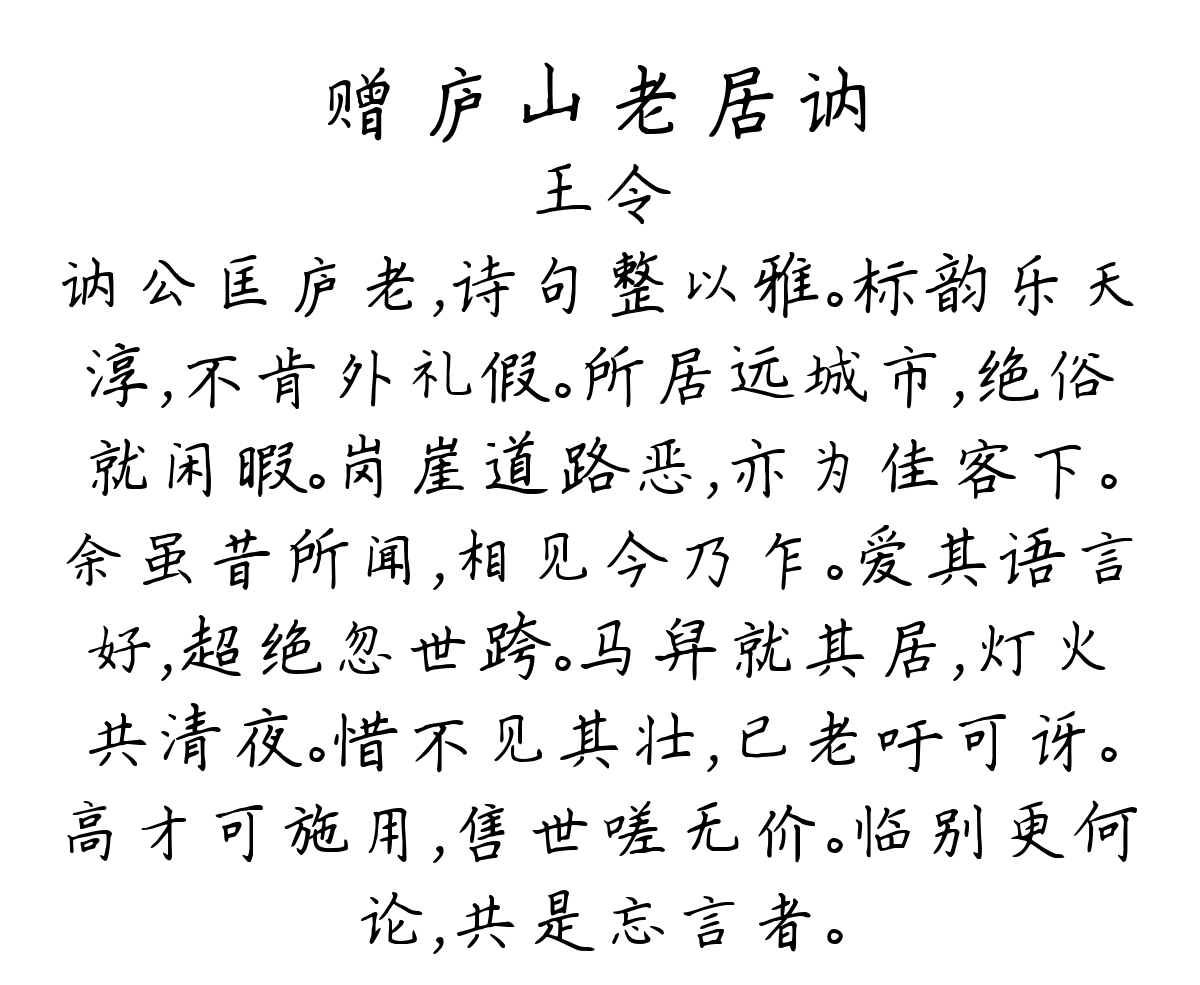 赠庐山老居讷
王令
讷公匡庐老,诗句整以雅。标韵乐天
淳,不肯外礼假。所居远城市,绝俗
就闲暇。岗崖道路恶,亦为佳客下。
余虽昔所闻,相见今乃乍。爱其语言
好,超绝忽世跨。马舁就其居,灯火
共清夜。惜不见其壮,已老吁可讶。
高才可施用,售世嗟无价。临别更何
论,共是忘言者。